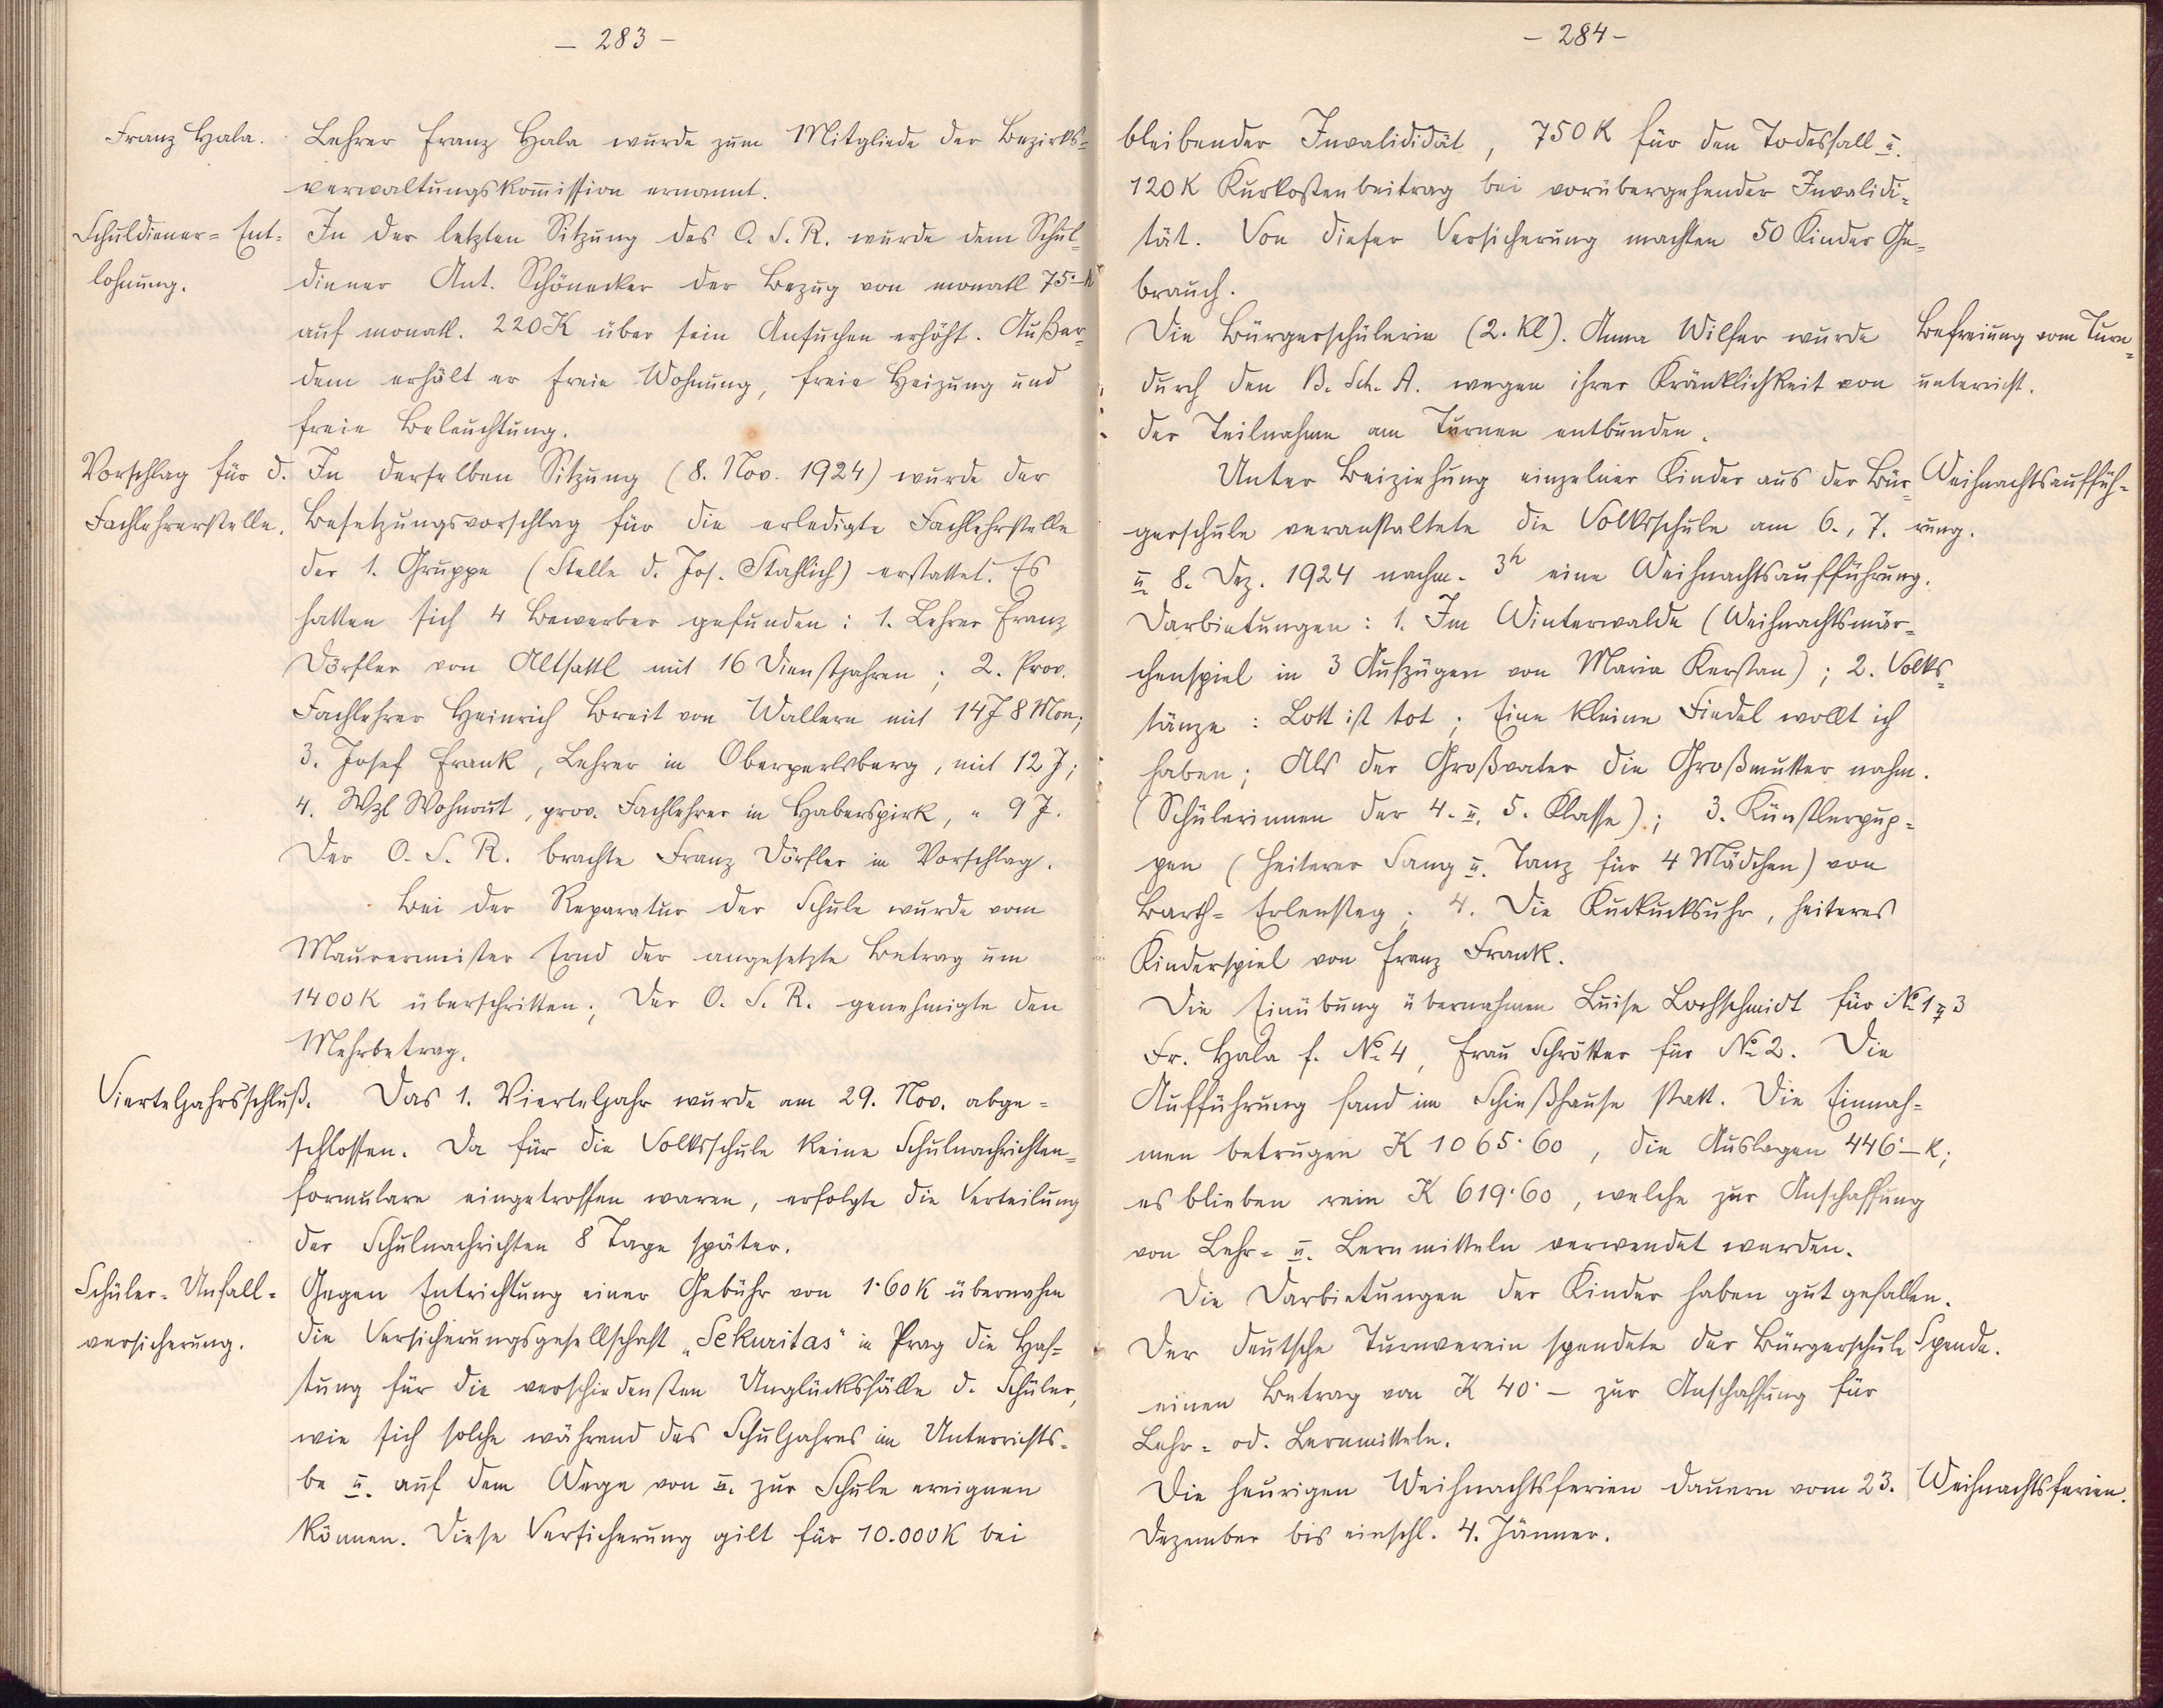 – 283 –
Franz Hala. Lehrer Franz Hala wurde zum Mitgliede der Bezirks-
verwaltungskom̄ission ernannt.
Schuldiener-Ent- In der letzten Sitzung des O. S. R. wurde dem Schul-
lohnung. diener Ant. Schönecker der Bezug von monatl 75·– K
auf monatl. 220 K über sein Ansuchen erhöht. Außer-
dem erhält er freie Wohnung, freie Heizung und
freie Beleuchtung.
Vorschlag für d. In derselben Sitzung (8. Nov. 1924) wurde der
Fachlehrerstelle. Besetzungsvorschlag für die erledigte Fachlehrstelle
der 1. Gruppe (Stelle d. Jos. Stahlich) erstattet. Es
hatten sich 4 Bewerber gefunden: 1. Lehrer Franz
Dörfler von Altsattl mit 16 Dienstjahren; 2. Prov.
Fachlehrer Heinrich Breit von Wallern mit 14 J 8 Mon;
3. Josef Frank, Lehrer in Oberperlsberg, mit 12 J;
4. Wzl Wohnout, prov. Fachlehrer in Haberspirk, " 9 J.
Der O. S. R. brachte Franz Dörfler in Vorschlag.
Bei der Reparatur der Schule wurde vom
Maurermeister der angesetzte Betrag um
1400 K überschritten; Der O. S. R. genehmigte den
Mehrbetrag.
Vierteljahrsschluß. Das 1. Vierteljahr wurde am 29. Nov. abge-
schlossen. Da für die Volksschule keine Schulnachrichten-
formulare eingetroffen waren, erfolgte die Verteilung
der Schulnachrichten 8 Tage später.
Schüler-Unfall- Gegen Entrichtung einer Gebühr von 1·60 K übernahm
versicherung. die Versicherungsgesellschaft „Sekuritas" in Prag die Haf-
tung für die verschiedensten Unglücksfälle d. Schüler,
wie sich solche während des Schuljahres im Unterrichts-
be u. auf dem Wege von u. zur Schule ereignen
können. Diese Versicherung gilt für 10.000 K bei
– 284 –
bleibender Invalididät, 750 K für den Todesfall u.
120 K Kurkostenbeitrag bei vorübergehender Invalidi-
tät. Von dieser Versicherung machten 50 Kinder Ge-
brauch.
Die Bürgerschülerin (2. Kl). Anna Wilfer wurde Befreiung vom Turn-
durch den B. Sch. A. wegen ihrer Kränklichkeit von unterricht.
der Teilnahme am Turnen entbunden.
Unter Beiziehung einzelner Kinder aus der Bür- Weihnachtsauffüh-
gerschule veranstaltete die Volksschule am 6., 7. rung.
u. 8. Dez. 1924 nachm. 3h eine Weihnachtsaufführung.
Darbietungen: 1. Im Winterwalde (Weihnachtsmär-
chenspiel in 3 Aufzügen von Maria Kerstan); 2. Volks-
tänze: Lott ist tot; Eine kleine Fiedel wollt ich
haben; Als der Großvater die Großmutter nahm.
(Schülerinnen der 4. u. 5. Klasse); 3. Künstlerpup-
pen (heiterer Sang u. Tanz für 4 Mädchen) von
Barth-Erlensteg; 4. Die Kuckucksuhr, heiteres
Kinderspiel von Franz Frank.
Die Einübung übernahmen Luise Lochschmidt für No 1 u 3
Fr. Hala f. No 4, Frau Schrötter für No 2. Die
Aufführung fand im Schießhause statt. Die Einnah-
men betrugen K 1065·60, die Auslagen 446·– K;
es blieben rein K 619·60, welche zur Anschaffung
von Lehr- u. Lernmitteln verwendet werden.
Die Darbietungen der Kinder haben gut gefallen.
Der deutsche Turnverein spendete der Bürgerschule Spende.
einen Betrag von K 40·– zur Anschaffung für
Lehr- od. Lernmitteln.
Die heurigen Weihnachtsferien dauern vom 23. Weihnachtsferien.
Dezember bis einschl. 4. Jänner.